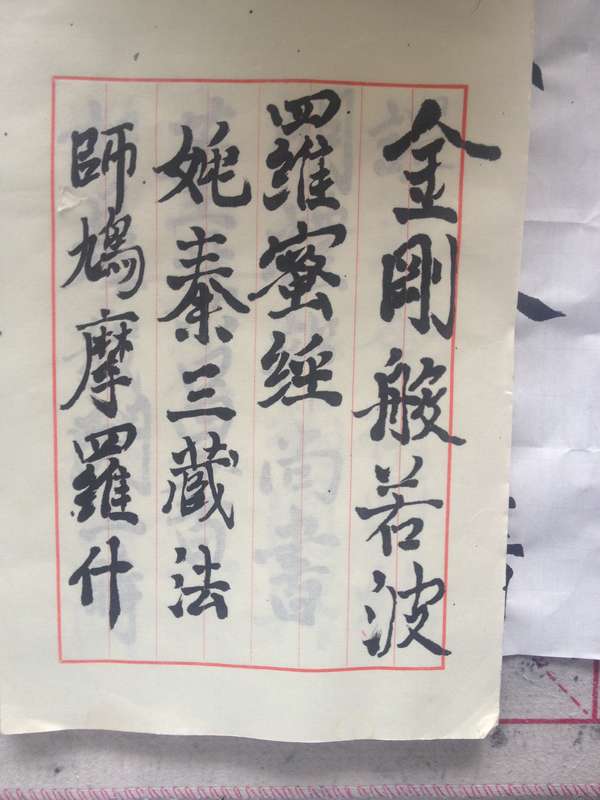 金剛般若波
羅蜜經
姚秦三藏法
師鳩摩羅什